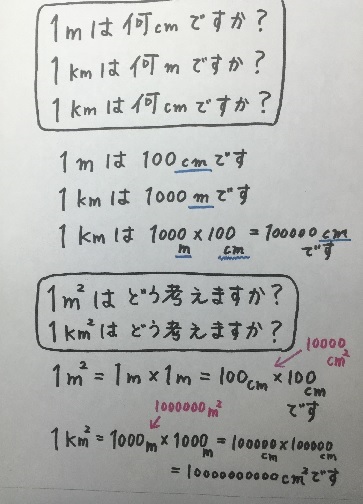 1mは何cmですか?
1kmは何mですか?
1kmは何cmですか?
1mは100cmです
1kmは1000mです
1kmは1000m×100cm=100000cmです
1m²はどう考えますか?
1km²はどう考えますか?
10000cm²
1m²=1m×1m=100cm×100cmです
1000000m²
1km²=1000m×1000m=100000cm×100000cm
=10000000000cm²です